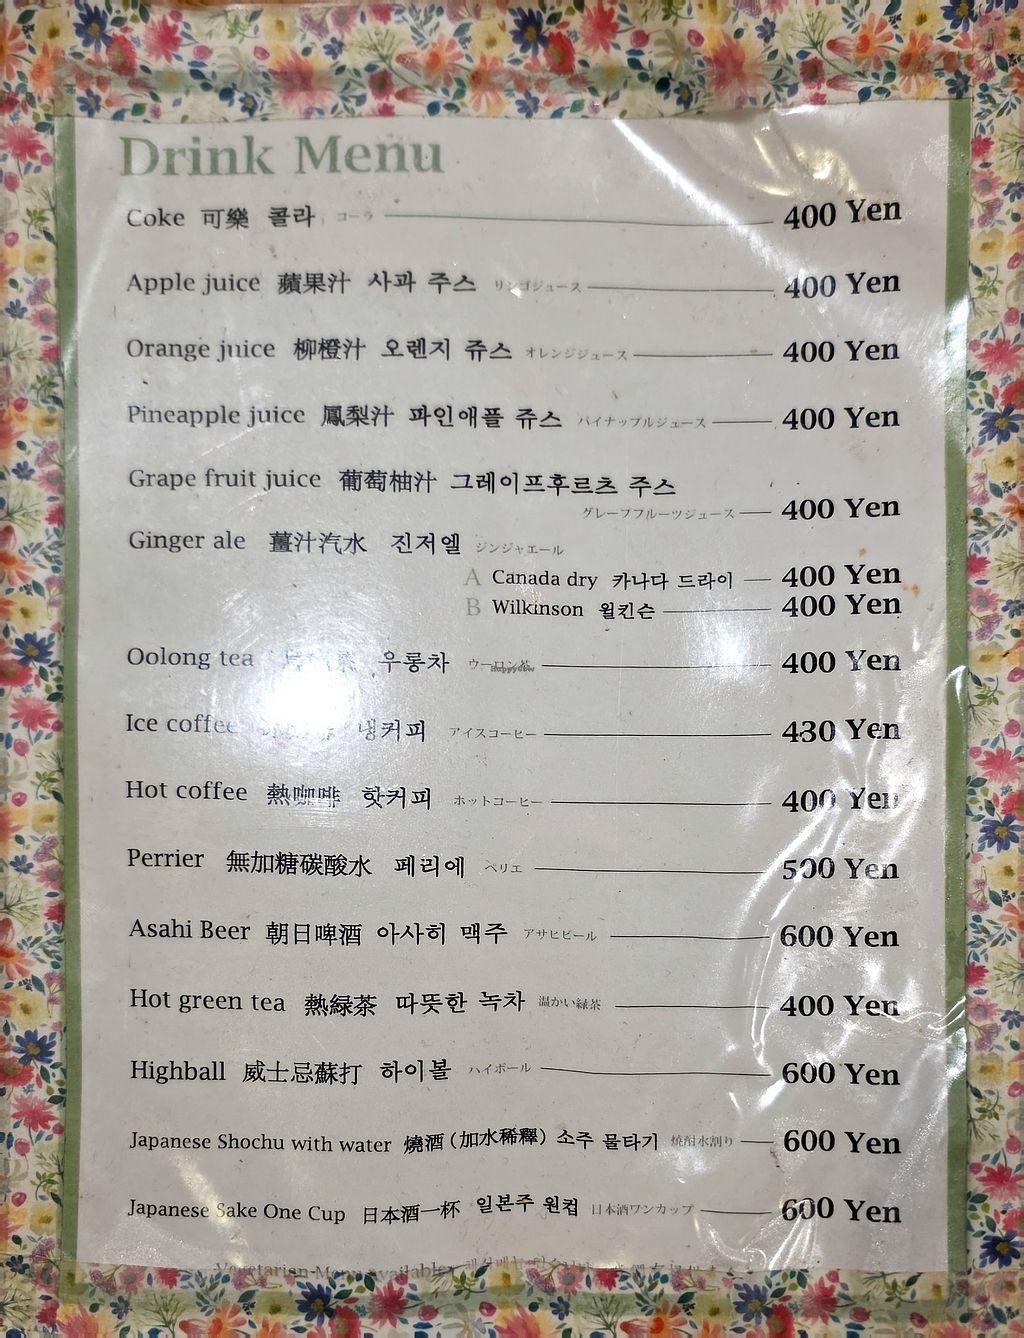 Drink Menu
Coke 可樂 콜라 コーラ 400 Yen
Apple juice 蘋果汁 사과 주스 リンゴジュース 400 Yen
Orange juice 柳橙汁 오렌지 쥬스 オレンジジュース 400 Yen
Pineapple juice 鳳梨汁 파인애플 쥬스 パイナップルジュース 400 Yen
Grape fruit juice 葡萄柚汁 그레이프후르츠 주스
グレープフルーツジュース 400 Yen
Ginger ale 薑汁汽水 진저엘 ジンジャエール
A Canada dry 카나다 드라이 400 Yen
B Wilkinson 윌킨슨 400 Yen
Oolong tea 우롱차 ウーロン茶 400 Yen
Ice coffee 냉커피 アイスコーヒー 430 Yen
Hot coffee 熱咖啡 핫커피 ホットコーヒー 400 Yen
Perrier 無加糖碳酸水 페리에 ペリエ 500 Yen
Asahi Beer 朝日啤酒 아사히 맥주 アサヒビール 600 Yen
Hot green tea 熱緑茶 따뜻한 녹차 温かい緑茶 400 Yen
Highball 威士忌蘇打 하이볼 ハイボール 600 Yen
Japanese Shochu with water 燒酒 (加水稀釋) 소주 물타기 焼酎水割り 600 Yen
Japanese Sake One Cup 日本酒一杯 일본주 원컵 日本酒ワンカップ 600 Yen
Vegetarian Menu available